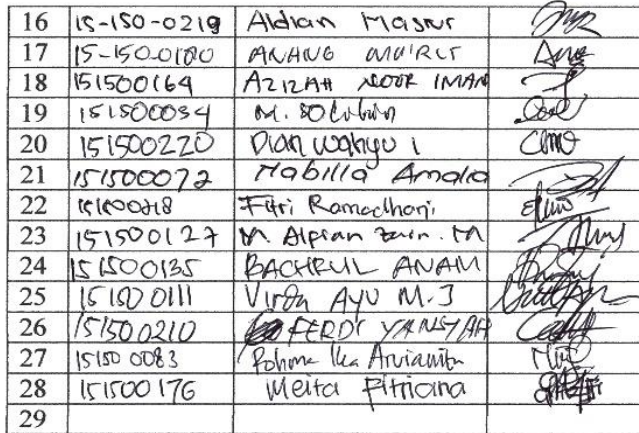 16 15-150-0219 Aldian Masrur
17 15-150-0180 ANANG
18 151500164 AZIZAH NOOR IMAN
19 151500034 M.
20 151500220 Dian wahyu i
21 151500072 Nabilla Amalia
22 Fitri Ramadhani
23 151500127 M. Alpian M
24 151500135 BACHRUL ANAM
25 151500111 Virda AYU M.J
26 151500210 FERDI YANSYAH
27 151500083 Rohma Ika
28 151500176 Meita Fitriana
29